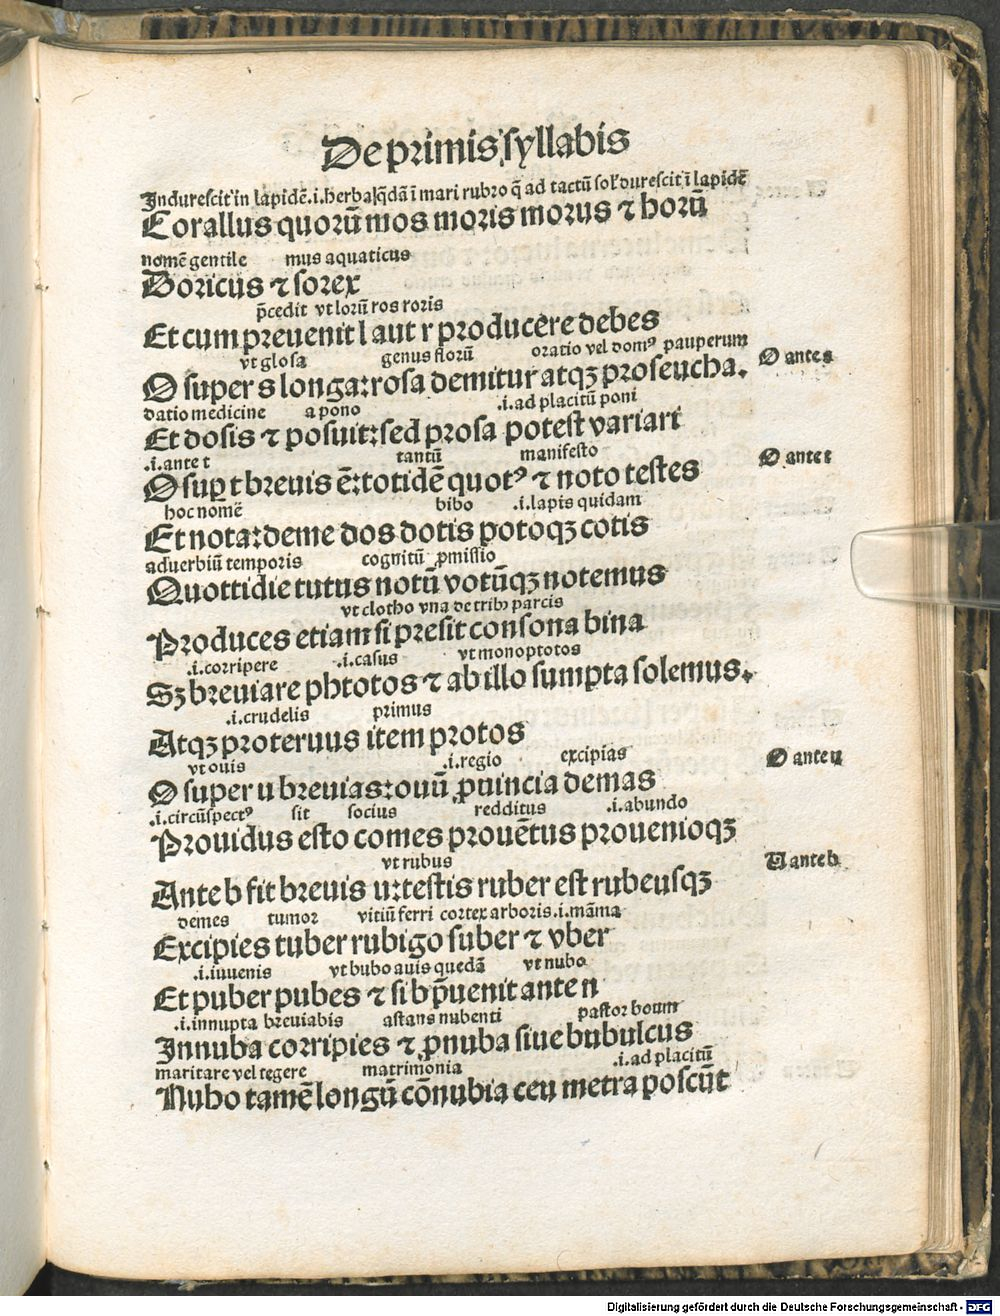 De primis syllabis
Indurescit in lapidē .i. herba q̄dā ī mari rubro q̄ ad tactū sol' durescit ī lapidē
Corallus quorū mos moris morus ⁊ horū
nomē gentile mus aquaticus
Doricus ⁊ sorex
p̄cedit vt lorū ros roris
Et cum preuenit l aut r producere debes
vt glosa genus florū oratio vel domꝰ pauperum
O super s longa: rosa demitur atqꝫ proseucha.
O ante s
datio medicine a pono .i. ad placitū poni
Et dosis ⁊ posuit: sed prosa potest variari
.i. ante t tantū manifesto
O suꝑ t breuis ē: totidē quotꝰ ⁊ noto testes
O ante t
hoc nomē bibo .i. lapis quidam
Et nota: deme dos dotis potoqꝫ cotis
aduerbiū temporis cognitū ꝓmissio
Quottidie tutus notū votūqꝫ notemus
vt clotho vna de tribꝰ parcis
Produces etiam si presit consona bina
.i. corripere .i. casus vt monoptotos
Sꝫ breuiare phtotos ⁊ ab illo sumpta solemus.
.i. crudelis primus
Atqꝫ proteruus item protos
vt ouis .i. regio excipias
O super u breuias: ouū ꝓuincia demas
O ante u
.i. circūspectꝰ sit socius redditus .i. abundo
Prouidus esto comes prouētus prouenioqꝫ
vt rubus
Ante b fit breuis u: testis ruber est rubeusqꝫ
U ante b
demes tumor vitiū ferri cortex arboris .i. māma
Excipies tuber rubigo suber ⁊ vber
.i. iuuenis vt bubo auis quedā vt nubo
Et puber pubes ⁊ si b p̄uenit ante n
.i. innupta breuiabis astans nubenti pastor boum
Innuba corripies ⁊ ꝓnuba siue bubulcus
maritare vel tegere matrimonia .i. ad placitū
Nubo tamē longū cōnubia ceu metra poscūt
Digitalisierung gefördert durch die Deutsche Forschungsgemeinschaft - DFG